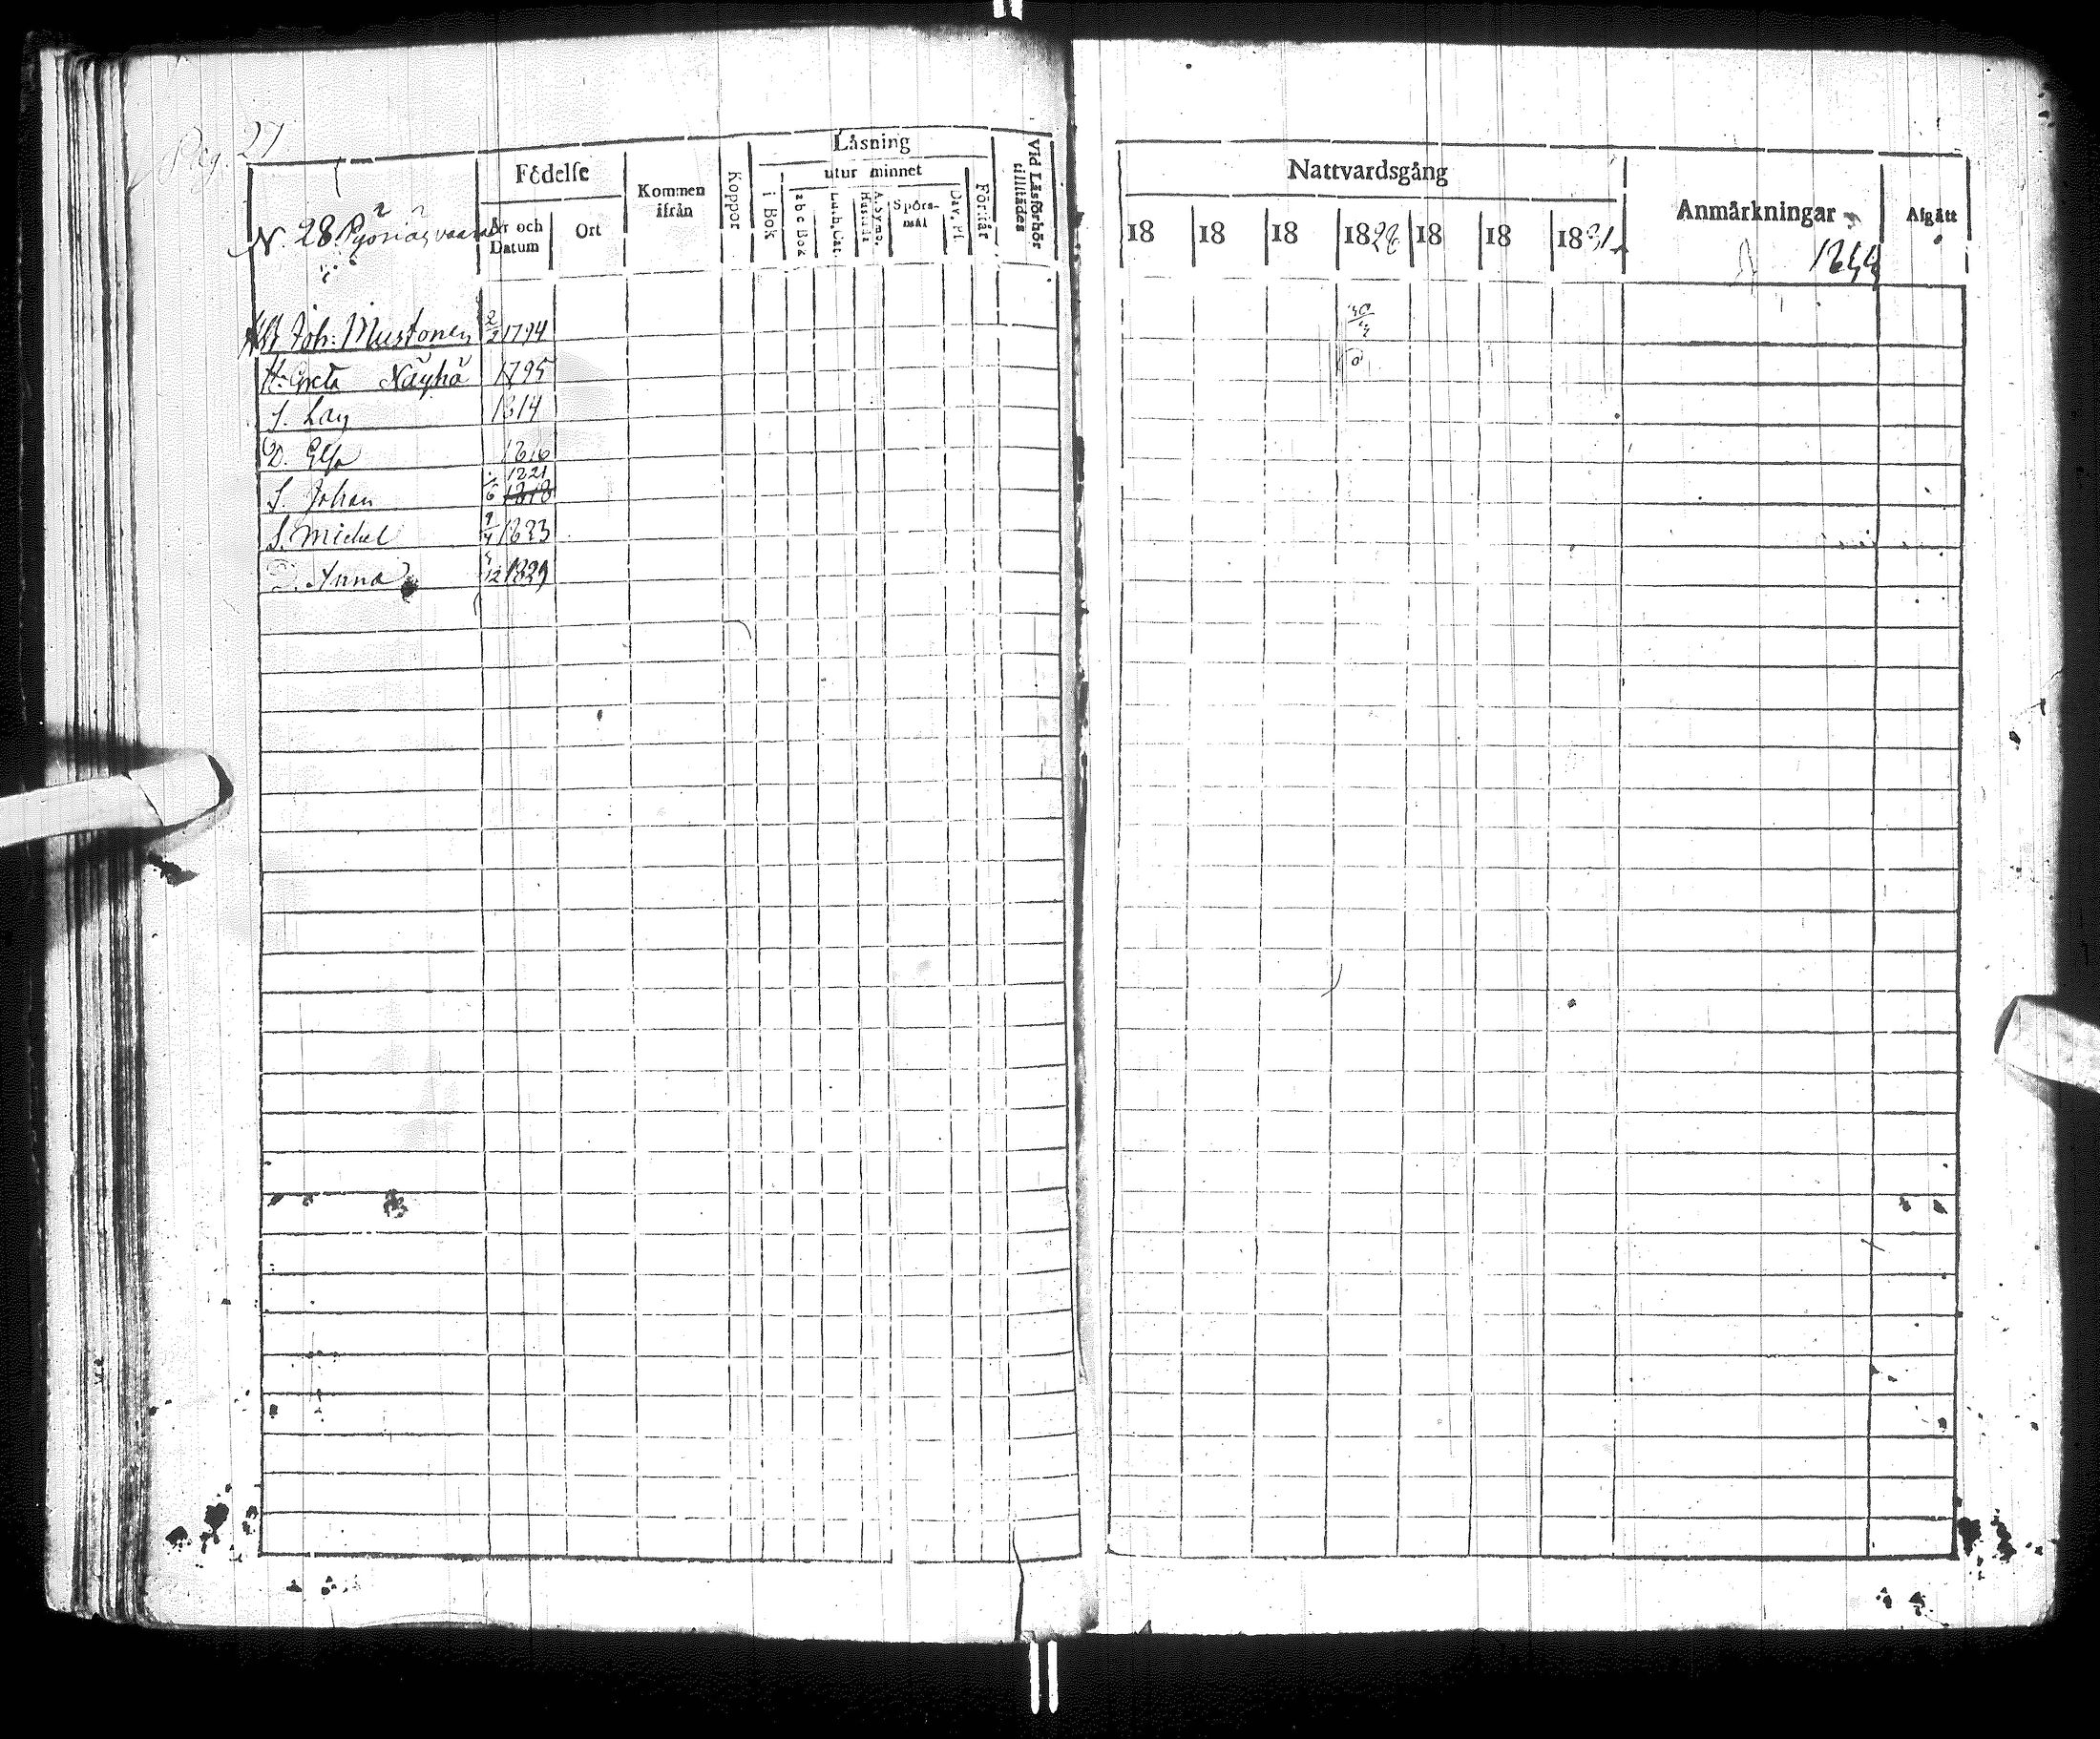 Pag. 27
Födelse
Kommen ifrån
Koppor
Läsning
utur minnet
i Bok
abc Bok
Luth. Cat.
A. Symb. Hustafla
Spörsmål
Dav. Ps.
Förstår
Vid Läsförhör tillstädes
År och Datum
Ort
N. 28
Nattvardsgång
Anmärkningar
Afgått
18 18 18 1828 18 18 1831
1844
Joh: Mustonen 2/2 1794
H: Greta Näyhä 1795
S. Lars 1814
D. Elsa 1816
1821
S. Johan 1/6 1818
S. Michel 9/4 1823
D. Anna 5/12 1829